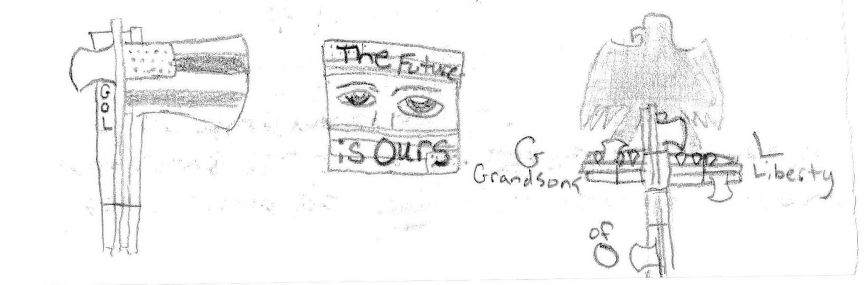 GOL
The Future
is Ours
G
Grandsons
L
Liberty
of
O